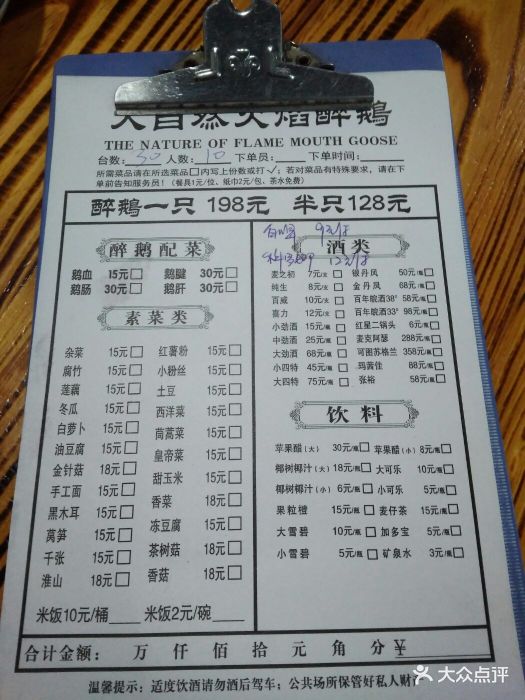 大自然火焰醉鹅
THE NATURE OF FLAME MOUTH GOOSE
台数: 30 人数: 10 下单员: 下单时间:
所需菜品请在所选菜品□内写上份数或打√; 若对菜品有特殊要求,请在下
单前告知服务员!(餐具1元/位、纸巾2元/包、茶水免费)
醉鹅一只 198元 半只128元
醉鹅配菜
鹅血 15元□ 鹅腱 30元□
鹅肠 30元□ 鹅肝 30元□
素菜类
杂菜 15元□ 红薯粉 15元□
腐竹 15元□ 小粉丝 15元□
莲藕 15元□ 土豆 15元□
冬瓜 15元□ 西洋菜 15元□
白萝卜 15元□ 茼蒿菜 15元□
油豆腐 15元□ 皇帝菜 15元□
金针菇 18元□ 甜玉米 15元□
手工面 15元□ 香菜 18元□
黑木耳 15元□ 冻豆腐 15元□
莴笋 15元□ 茶树菇 18元□
千张 15元□ 香菇 18元□
淮山 18元□
米饭10元/桶 米饭2元/碗
酒类
9元/
12元/
麦之初 7元/支□ 银丹凤 50元/瓶□
纯生 8元/支□ 金丹凤 68元/瓶□
百威 10元/支□ 百年皖酒38° 58元/瓶□
喜力 12元/支□ 百年皖酒33° 98元/瓶□
小劲酒 15元/瓶□ 红星二锅头 6元/瓶□
中劲酒 25元/瓶□ 麦克阿瑟 288元/瓶□
大劲酒 68元/瓶□ 可图苏格兰 358元/瓶□
小四特 45元/瓶□ 玛茜佳 88元/瓶□
大四特 75元/瓶□ 张裕 58元/瓶□
饮料
苹果醋(大) 30元/瓶□ 苹果醋(小) 8元/瓶□
椰树椰汁(大) 18元/瓶□ 大可乐 10元/瓶□
椰树椰汁(小) 6元/瓶□ 小可乐 5元/瓶□
果粒橙 15元/瓶□ 麦仔茶 15元/瓶□
大雪碧 10元/瓶□ 加多宝 5元/瓶□
小雪碧 5元/瓶□ 矿泉水 3元/瓶□
合计金额: 万 仟 佰 拾 元 角 分 ¥
温馨提示: 适度饮酒请勿酒后驾车; 公共场所保管好私人财
大众点评